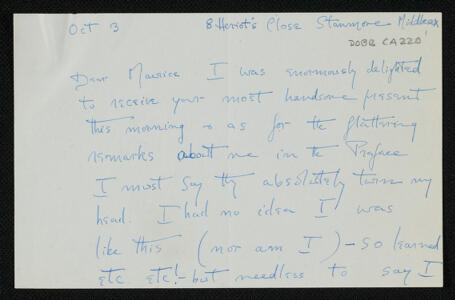 Oct 3 8 Heriot's Close Stanmore Middlesex
Dear Maurice I was enormously delighted
to receive your most handsome present
this morning & as for the flattering
remarks about me in the Preface
I must say they absolutely turn my
head. I had no idea I was
like this (nor am I) – so learned
etc. etc! – but needless to say I